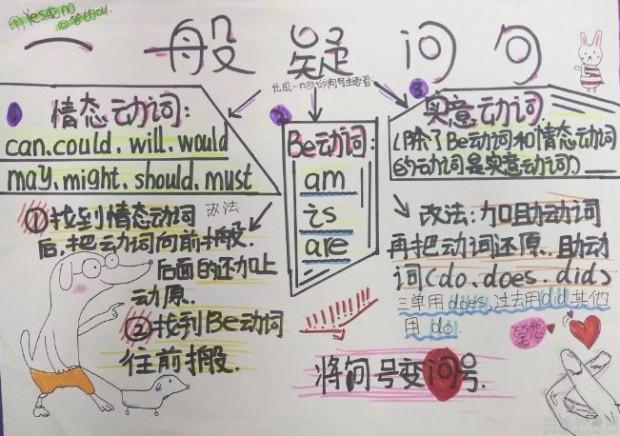 用Yes或no
回答的句.
一般疑问句
①
情态动词:
can.could.will.would
may.might.should.must
改法
①找到情态动词
后,把动词向前搬.
后面的还加上
动原.
②找到Be动词
往前搬.
②
Be动词:
am
is
are
③
实意动词.
(除了Be动词和情态动词
的动词是实意动词)
改法:加助动词
再把动词还原.助动
词(do.does.did)
三单用does,过去用did,其他
用do.
将句号变问号.